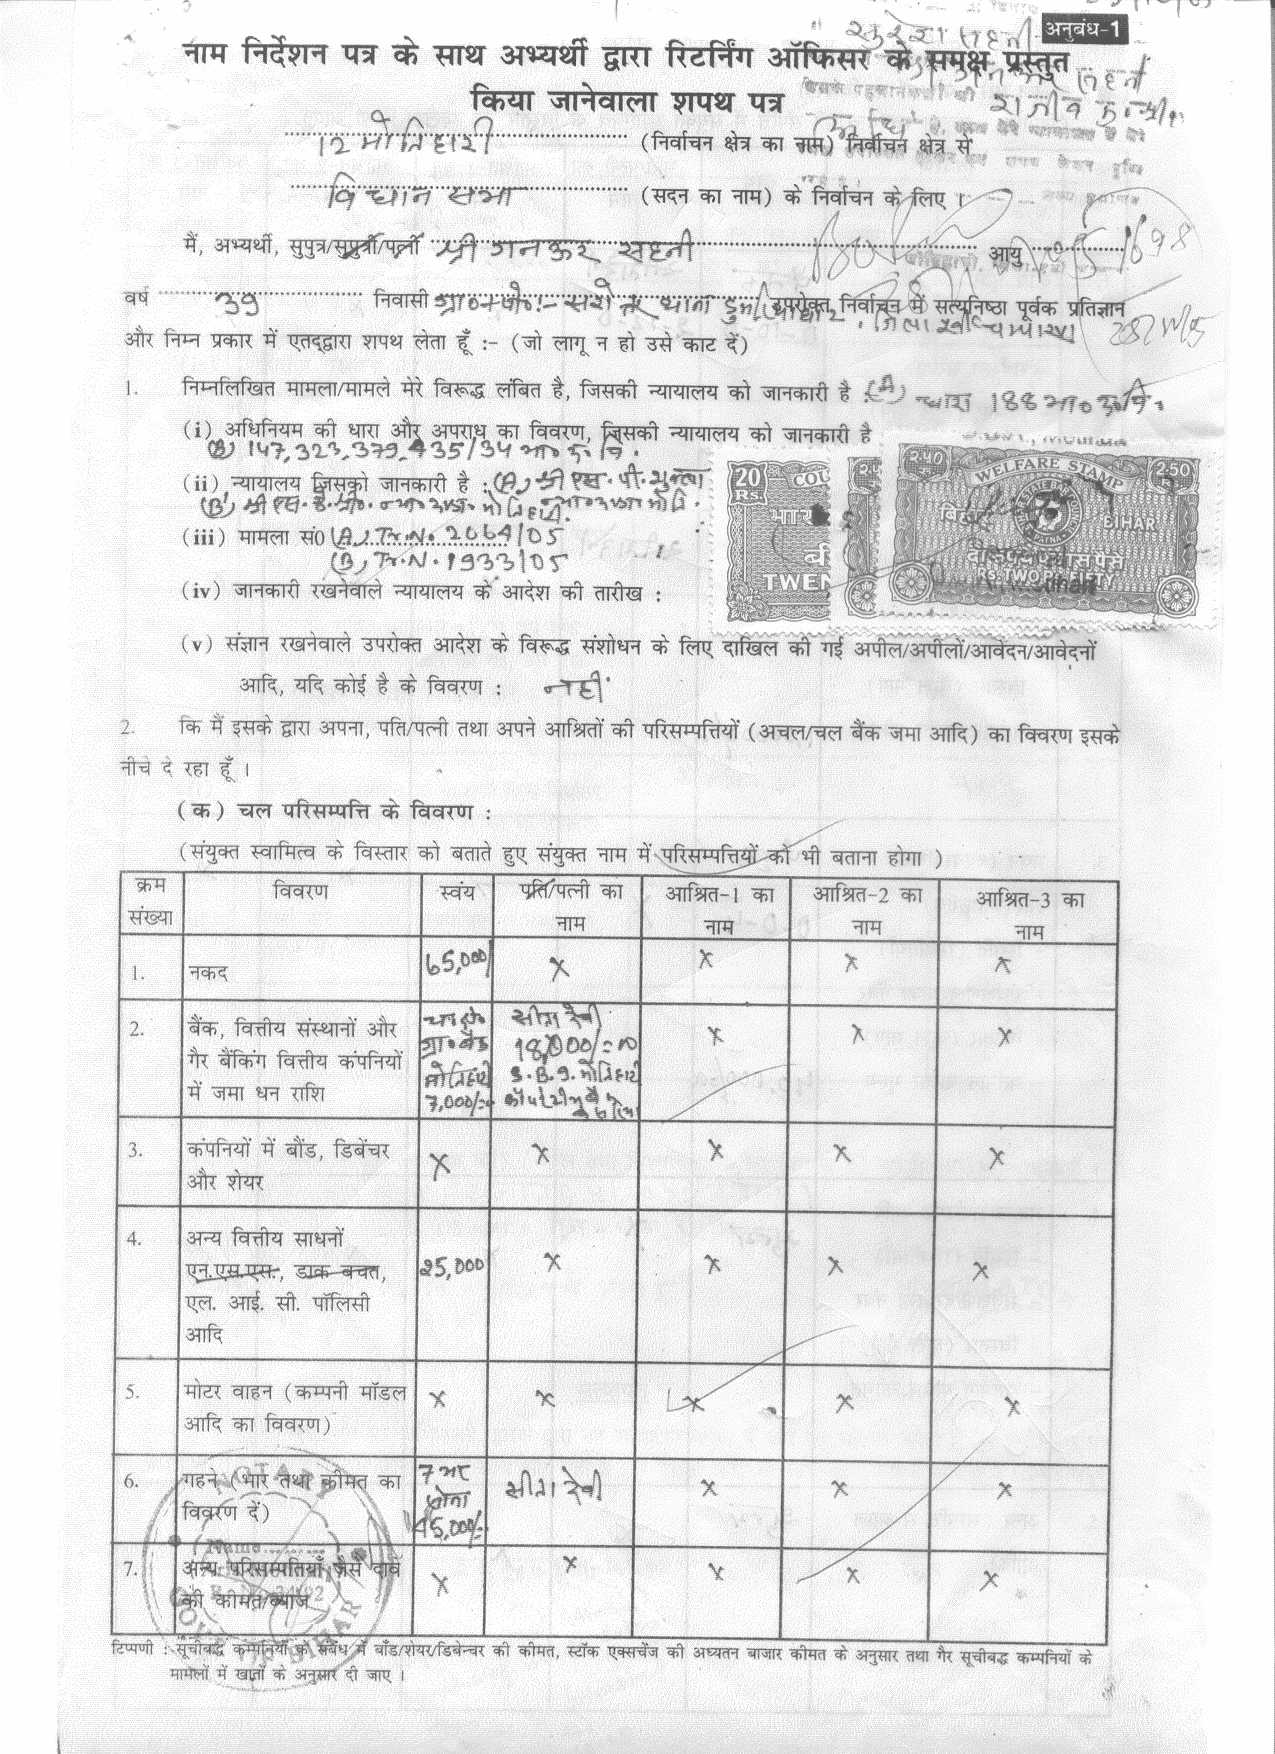 अनुबंध-1
सुरेश सहनी
नाम निर्देशन पत्र के साथ अभ्यर्थी द्वारा रिटर्निंग ऑफिसर के समक्ष प्रस्तुत
किया जानेवाला शपथ पत्र
12 मोतिहारी (निर्वाचन क्षेत्र का नाम) निर्वाचन क्षेत्र से
विधान सभा (सदन का नाम) के निर्वाचन के लिए ।
मैं, अभ्यर्थी, सुपुत्र/सुपुत्री/पत्नी श्री गनकर सहनी आयु
वर्ष 39 निवासी उपरोक्त निर्वाचन में सत्यनिष्ठा पूर्वक प्रतिज्ञान
और निम्न प्रकार में एतद्द्वारा शपथ लेता हूँ :- (जो लागू न हो उसे काट दें)
1. निम्नलिखित मामला/मामले मेरे विरूद्ध लंबित है, जिसकी न्यायालय को जानकारी है : (A) धारा 188 भा० द० वि०
(i) अधिनियम की धारा और अपराध का विवरण, जिसकी न्यायालय को जानकारी है
(B) 147,323,379,435/34 भा० द० वि०
(ii) न्यायालय जिसको जानकारी है : (A) श्री एस. पी. शुक्ला
(iii) मामला सं0 (A) Tr. N. 2064/05
(B) Tr. N. 1933/05
(iv) जानकारी रखनेवाले न्यायालय के आदेश की तारीख :
20 RS.
TWEN
2.40 2.50
WELFARE STAMP
BIHAR
RS. TWO P. FIFTY
(v) संज्ञान रखनेवाले उपरोक्त आदेश के विरूद्ध संशोधन के लिए दाखिल की गई अपील/अपीलों/आवेदन/आवेदनों
आदि, यदि कोई है के विवरण : नहीं
2. कि मैं इसके द्वारा अपना, पति/पत्नी तथा अपने आश्रितों की परिसम्पत्तियों (अचल/चल बैंक जमा आदि) का विवरण इसके
नीचे दे रहा हूँ ।
(क) चल परिसम्पत्ति के विवरण :
(संयुक्त स्वामित्व के विस्तार को बताते हुए संयुक्त नाम में परिसम्पत्तियों को भी बताना होगा )
क्रम संख्या विवरण स्वंय पति/पत्नी का नाम आश्रित-1 का नाम आश्रित-2 का नाम आश्रित-3 का नाम
1. नकद 65,000/ x x x x
2. बैंक, वित्तीय संस्थानों और सीता देवी x x x
गैर बैंकिंग वित्तीय कंपनियों ग्रा० बैंक 18,000/=00
में जमा धन राशि मोतिहारी S.B.I. मोतिहारी
7,000/=
3. कंपनियों में बौंड, डिबेंचर x x x x x
और शेयर
4. अन्य वित्तीय साधनों
एन.एस.एस., डाक बचत, 25,000 x x x x
एल. आई. सी. पॉलिसी
आदि
5. मोटर वाहन (कम्पनी मॉडल x x x x x
आदि का विवरण)
6. गहने (भार तथा कीमत का 7 भर सीता देवी x x x
विवरण दें) सोना
45,000/=
7. अन्य परिसम्पतियाँ जैसे दावे x x x x x
की कीमत/ब्याज
NOTARY
Name
BIHAR
टिप्पणी : सूचीबद्ध कम्पनियों के संबंध में बाँड/शेयर/डिबेन्चर की कीमत, स्टॉक एक्सचेंज की अध्यतन बाजार कीमत के अनुसार तथा गैर सूचीबद्ध कम्पनियों के
मामलों में खातों के अनुसार दी जाए ।